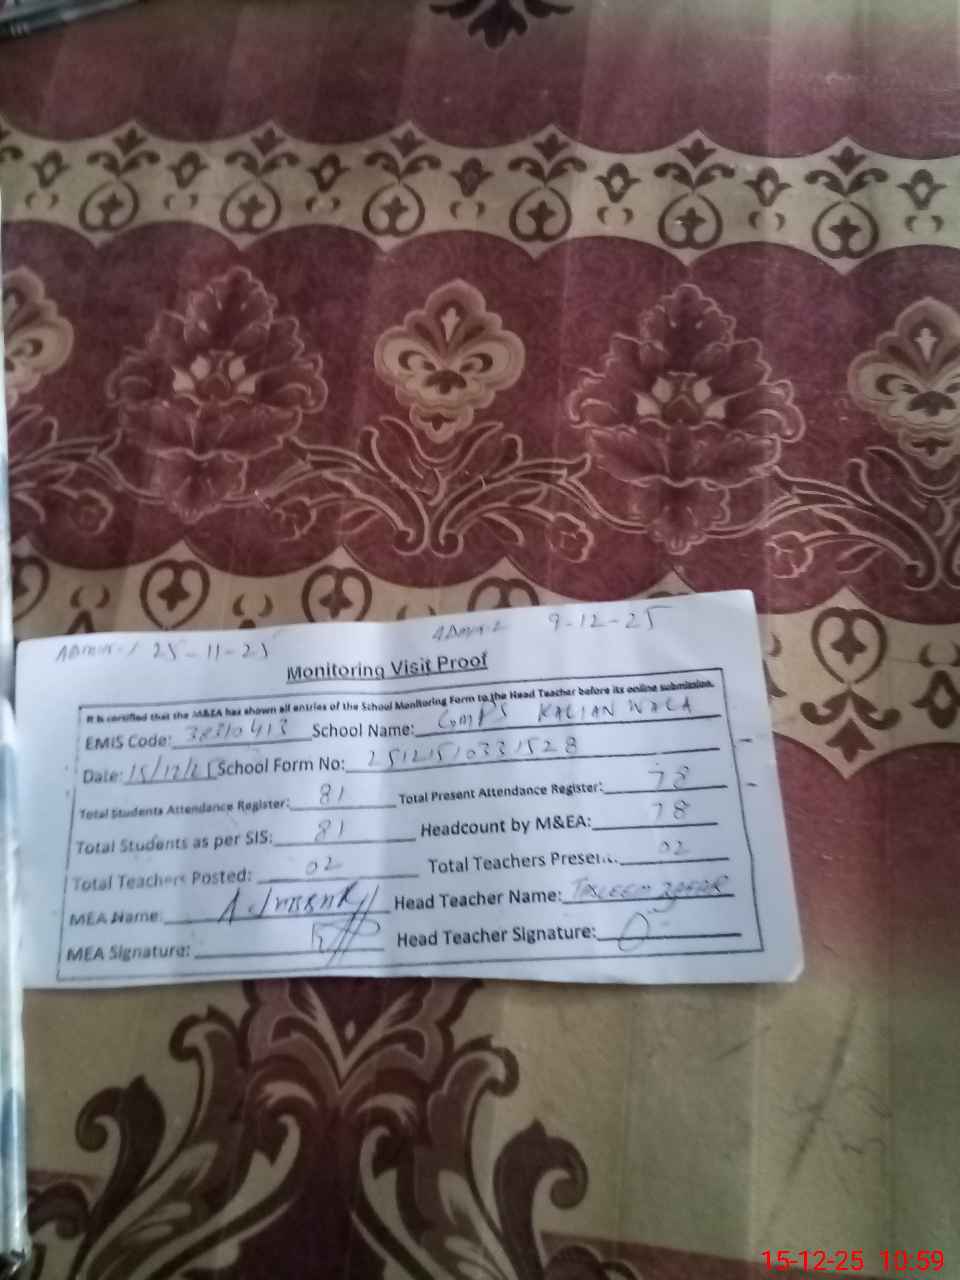 ADMN-1 25-11-25 ADMN-2 9-12-25
Monitoring Visit Proof
It is certified that the M&EA has shown all entries of the School Monitoring Form to the Head Teacher before its online submission.
EMIS Code: 38310413 School Name: GMPS KALIAN WALA
Date: 15/12/25 School Form No: 25121510331528
Total Students Attendance Register: 81 Total Present Attendance Register: 78
Total Students as per SIS: 81 Headcount by M&EA: 78
Total Teachers Posted: 02 Total Teachers Present: 02
MEA Name: Head Teacher Name: TASLEEM ZAFAR
MEA Signature: Head Teacher Signature:
15-12-25 10:59